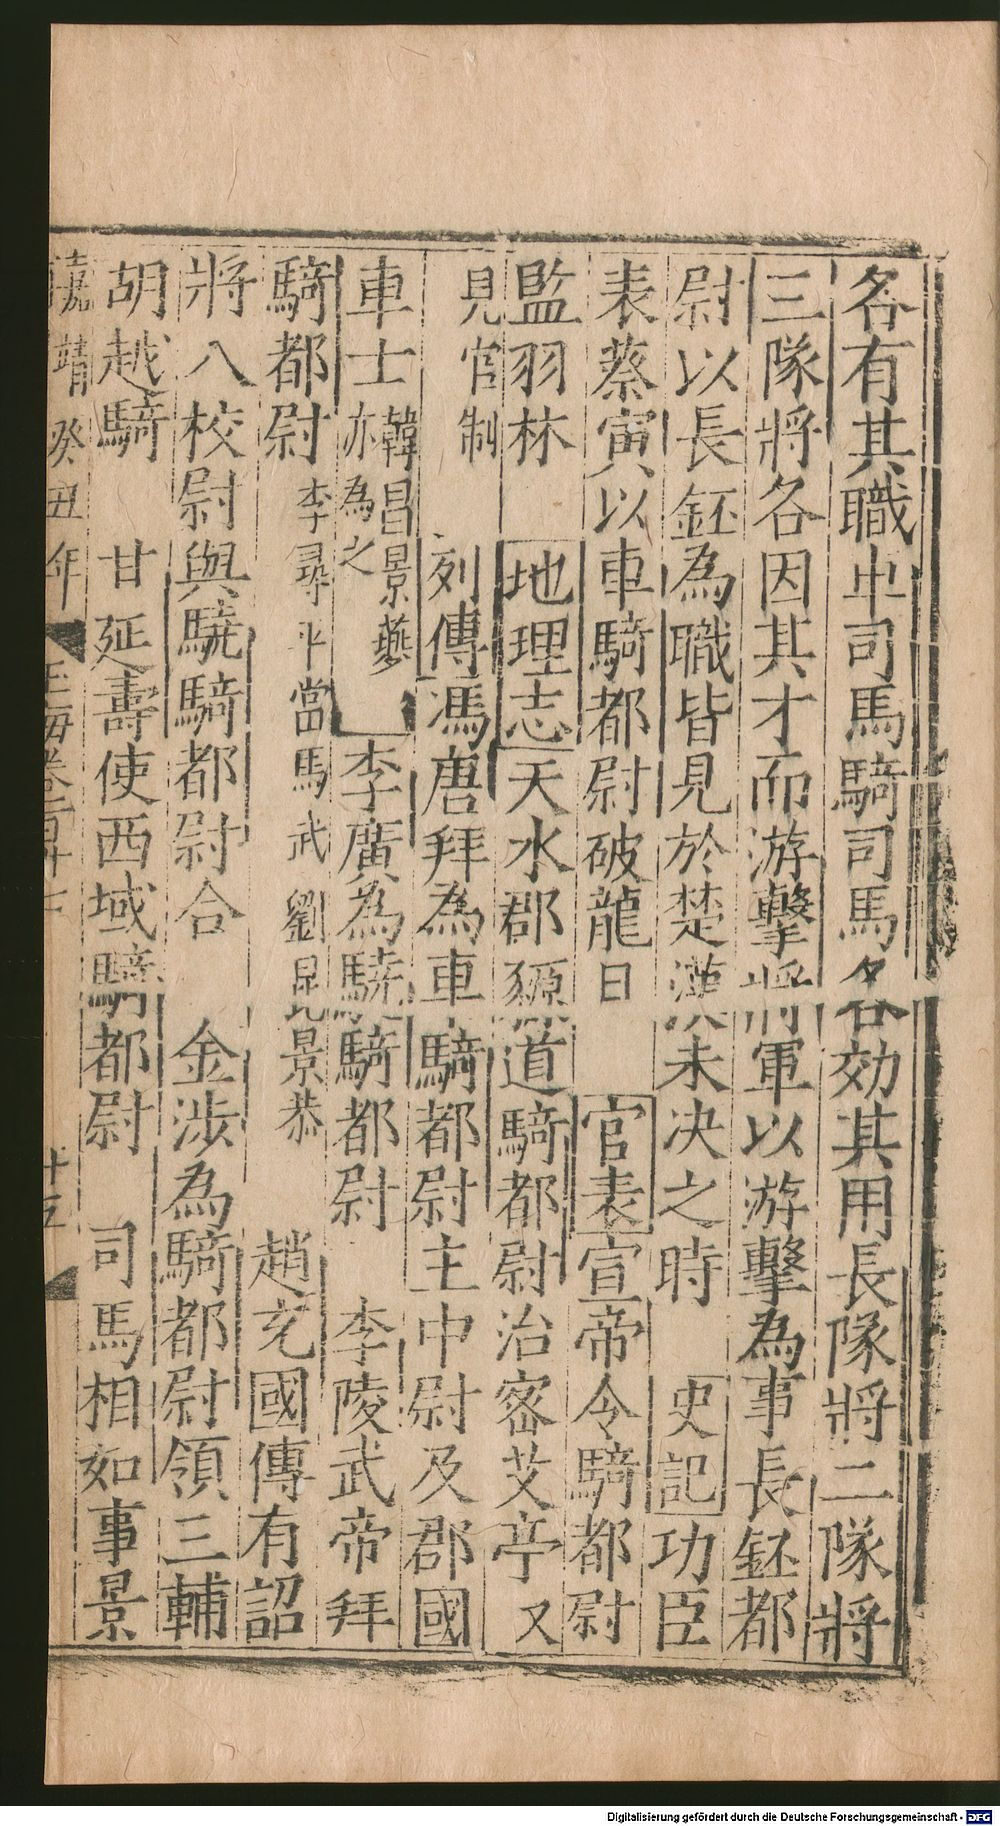 各有其職中司馬騎司馬各効其用長隊將二隊將
三隊將各因其才而游擊將軍以游擊為事長鉟都
尉以長鉟為職皆見於楚漢未决之時 史記功臣
表蔡寅以車騎都尉破龍且 官表宣帝令騎都尉
監羽林 地理志天水郡豲道騎都尉治密艾亭 又
見官制 列傳馮唐拜為車騎都尉主中尉及郡國
車士 韓昌景燕亦為之 李廣為驍騎都尉 李陵武帝拜
騎都尉 李尋平當馬武劉昆景恭 趙充國傳有詔
將八校尉與驍騎都尉合 金涉為騎都尉領三輔
胡越騎 甘延壽使西域騎都尉 司馬相如事景
嘉靖癸丑年 玉海卷一百三十七 十五
Digitalisierung gefördert durch die Deutsche Forschungsgemeinschaft - DFG